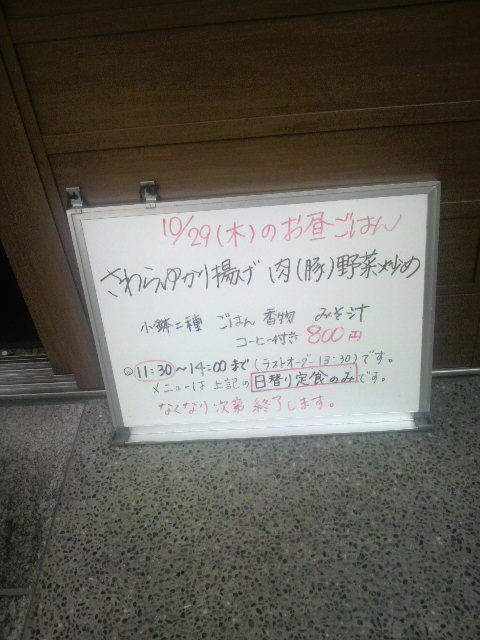 10/29(木)のお昼ごはん
さわらゆかり揚げ 肉(豚)野菜炒め
小鉢二種 ごはん 香物 みそ汁
コーヒー付き 800円
11:30〜14:00まで(ラストオーダー13:30)です。
メニューは上記の日替り定食のみです。
なくなり次第終了します。